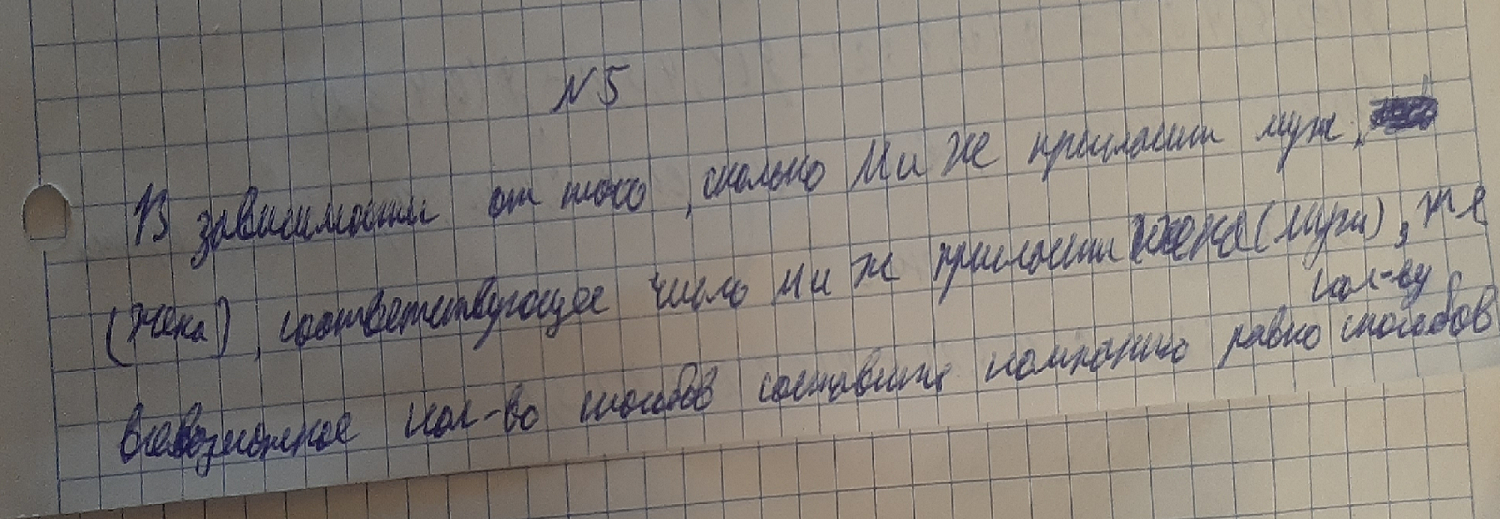 N 5
В зависимости от того, сколько М и Ж пригласит муж,
(жена), соответствующее число М и Ж пригласит жена (муж), же
кол-ву
всевозможное кол-во способов составить компанию равно способов